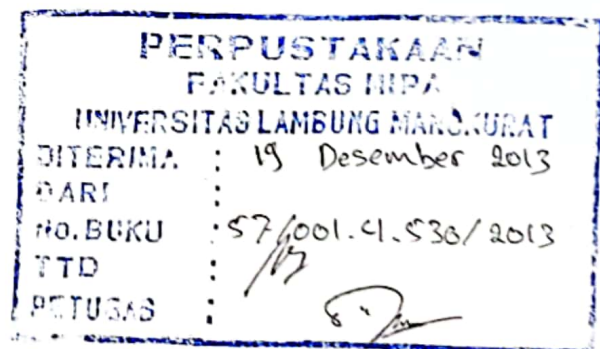 PERPUSTAKAAN
FAKULTAS MIPA
UNIVERSITAS LAMBUNG MANGKURAT
DITERIMA : 19 Desember 2013
DARI :
No. BUKU : 57/001.4.530/2013
TTD :
PETUGAS :